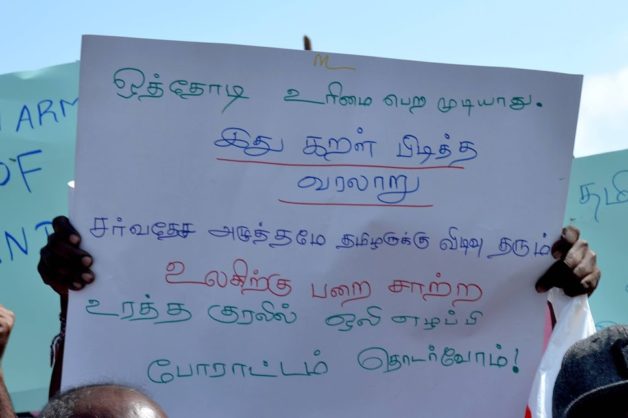 ஒத்தோடி உரிமை பெற முடியாது.
இது கறள் பிடித்த
வரலாறு
சர்வதேச அழுத்தமே தமிழருக்கு விடிவு தரும்
உலகிற்கு பறை சாற்ற
உரத்த குரலில் ஒலி எழுப்பி
போராட்டம் தொடர்வோம்!
ARM
OF
AND
தமி